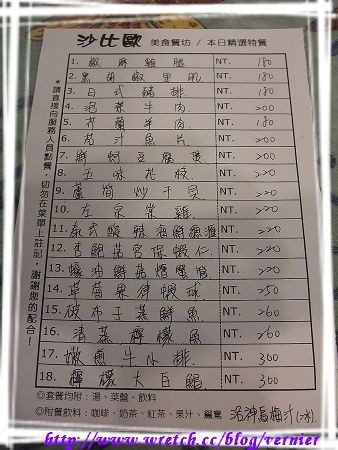 沙比歐 美食餐坊 / 本日精選特餐
1. 椒麻雞腿 NT. 180
2. 黑胡椒里肌 NT. 180
3. 日式豬排 NT. 180
4. 泡菜牛肉 NT. 200
5. 芥蘭羊肉 NT. 180
6. 茄汁魚片 NT. 200
7. 鮮蚵豆腐煲 NT. 200
8. 五味花枝 NT. 220
9. 蘆筍炒干貝 NT. 220
10. 左宗棠雞 NT. 220
11. 泰式酸辣海鮮 NT. 220
12. 杏鮑菇宮保蝦仁 NT. 220
13. 蠔油鮮菇 NT. 220
14. 草莓果律蝦球 NT. 250
15. 破布子蒸鮮魚 NT. 260
16. 清蒸檸檬魚 NT. 260
17. 嫩煎牛小排 NT. 300
18. 檸檬大白鯧 NT. 300
◎套餐均附:湯、菜盤、飲料
◎附餐飲料:咖啡、奶茶、紅茶、果汁、鴛鴦 洛神烏梅汁(冰)
*請直接向服務人員點餐,切勿在菜單上註記,謝謝您的配合!
http://www.wretch.cc/blog/vernier